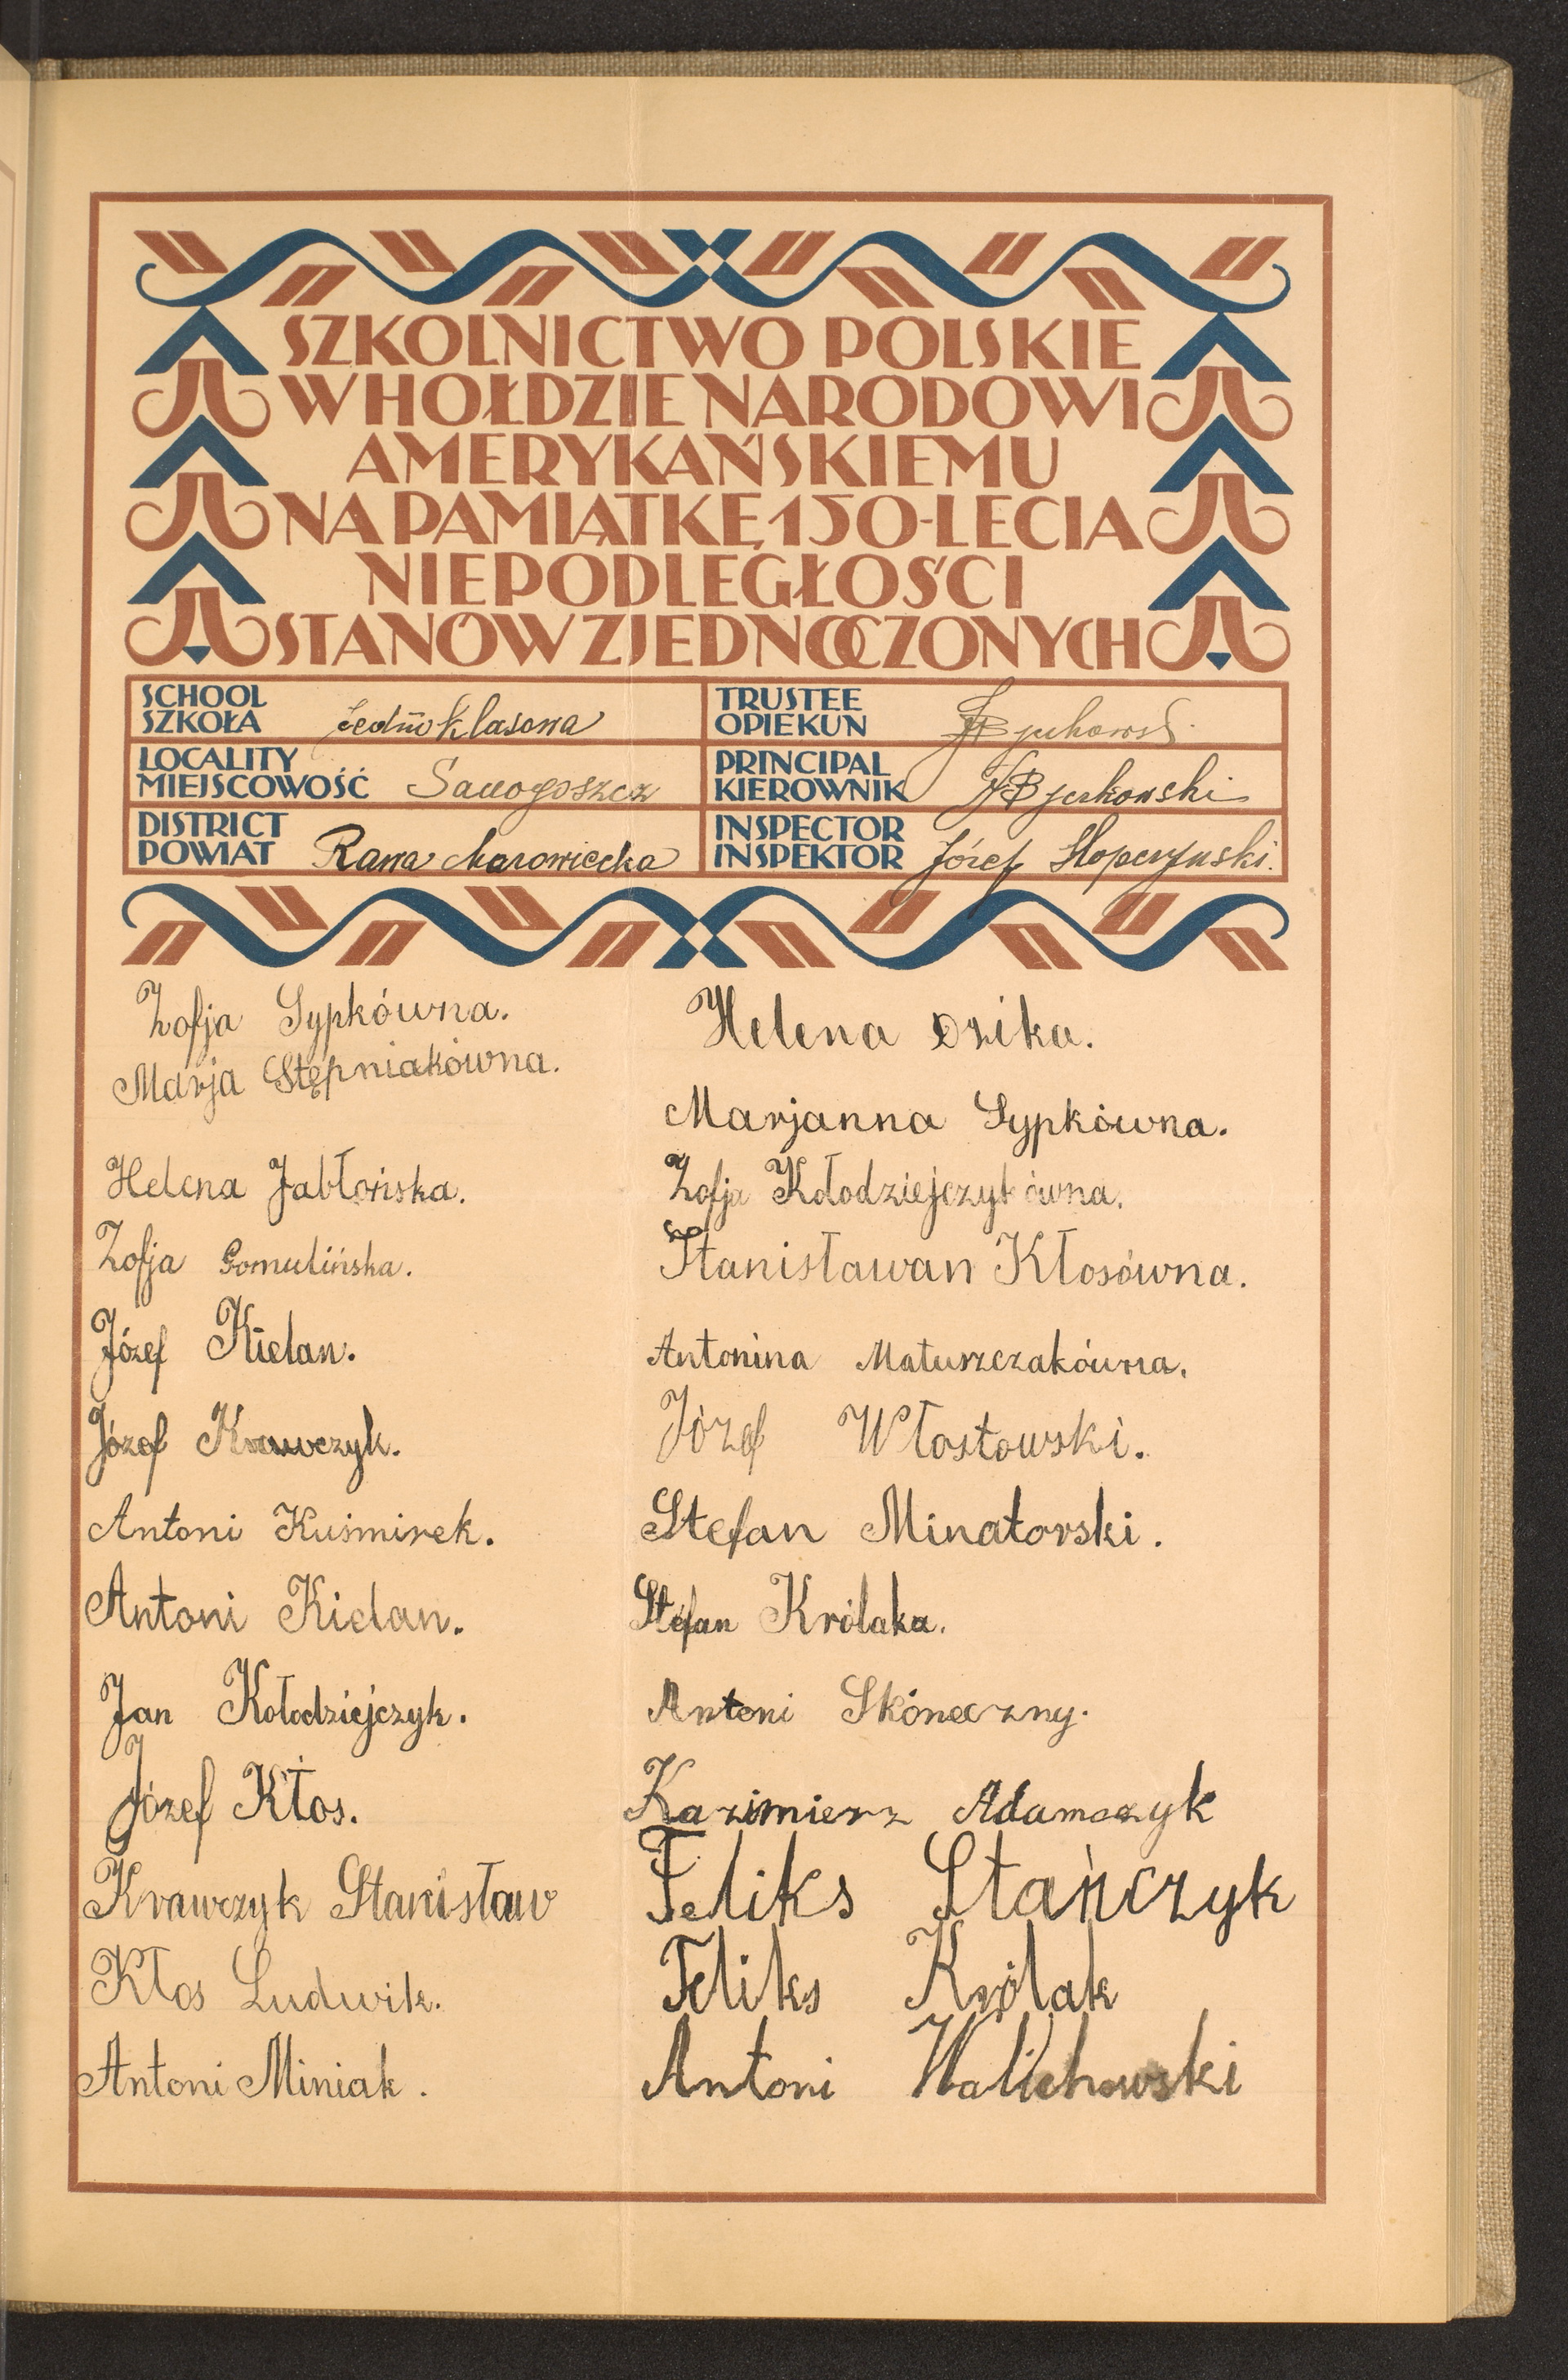 SZKOLNICTWO POLSKIE
W HOŁDZIE NARODOWI
AMERYKAŃSKIEMU
NA PAMIĄTKĘ 150-LECIA
NIEPODLEGŁOŚCI
STANÓW ZJEDNOCZONYCH
SCHOOL
SZKOŁA Jednoklasowa
LOCALITY
MIEJSCOWOŚĆ
DISTRICT
POWIAT Rawa Mazowiecka
TRUSTEE
OPIEKUN
PRINCIPAL
KIEROWNIK
INSPECTOR
INSPEKTOR Józef
Zofja Sypkówna.
Marja Stępniakówna.
Helena Jabłońska.
Zofja Gomulińska.
Józef Kielan.
Józef Krawczyk.
Antoni Kuśmirek.
Antoni Kielan.
Jan Kołodziejczyk.
Józef Kłos.
Krawczyk Stanisław
Kłos Ludwik.
Antoni Miniak.
Helena Dzika.
Marjanna Sypkówna.
Zofja Kołodziejczykówna.
Stanisławan Kłosówna.
Antonina Matuszczakówna.
Józef Włostowski.
Stefan Minatorski.
Stefan Królaka.
Antoni Skóneczny.
Kazimierz Adamczyk
Feliks Stańczyk
Feliks Królak
Antoni Walichowski